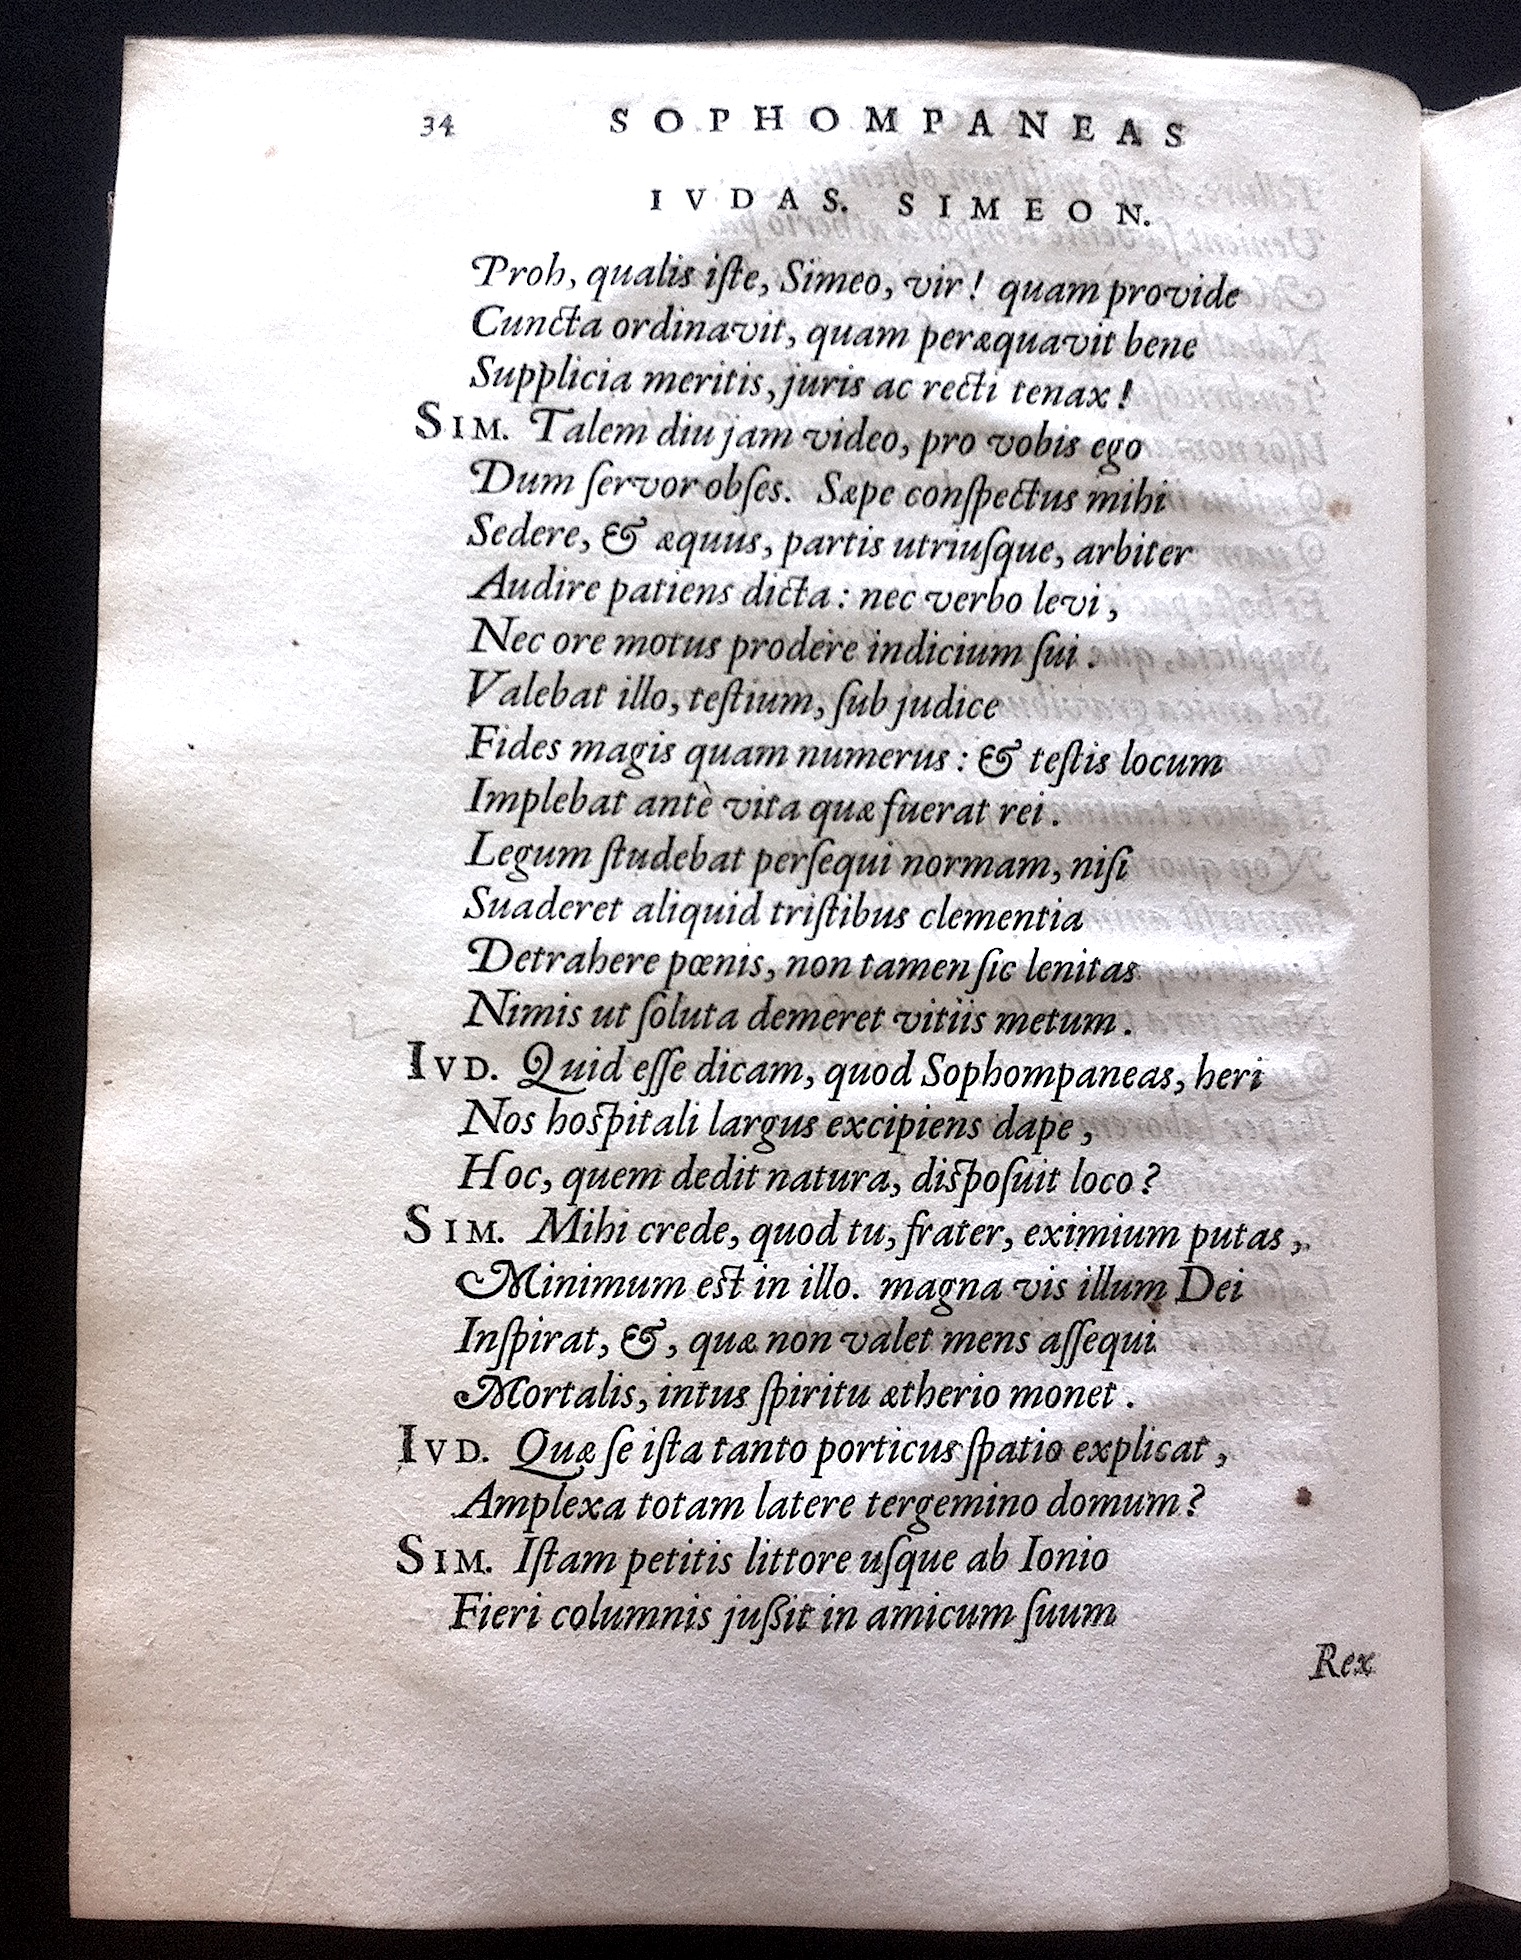 34 SOPHOMPANEAS
IVDAS. SIMEON.
Proh, qualis iſte, Simeo, vir! quam provide
Cuncta ordinavit, quam peræquavit bene
Supplicia meritis, juris ac recti tenax!
SIM. Talem diu jam video, pro vobis ego
Dum ſervor obſes. Sæpe conſpectus mihi
Sedere, & æquus, partis utriuſque, arbiter
Audire patiens dicta: nec verbo levi,
Nec ore motus prodere indicium ſui.
Valebat illo, teſtium, ſub judice
Fides magis quam numerus: & teſtis locum
Implebat antè vita quæ fuerat rei.
Legum ſtudebat perſequi normam, niſi
Suaderet aliquid triſtibus clementia
Detrahere pœnis, non tamen ſic lenitas
Nimis ut ſoluta demeret vitiis metum.
IVD. Quid eſſe dicam, quod Sophompaneas, heri
Nos hoſpitali largus excipiens dape,
Hoc, quem dedit natura, diſpoſuit loco?
SIM. Mihi crede, quod tu, frater, eximium putas,
Minimum est in illo. magna vis illum Dei
Inſpirat, &, quæ non valet mens aſſequi
Mortalis, intus ſpiritu ætherio monet.
IVD. Quæ ſe iſta tanto porticus ſpatio explicat,
Amplexa totam latere tergemino domum?
SIM. Iſtam petitis littore uſque ab Ionio
Fieri columnis juſſit in amicum ſuum
Rex